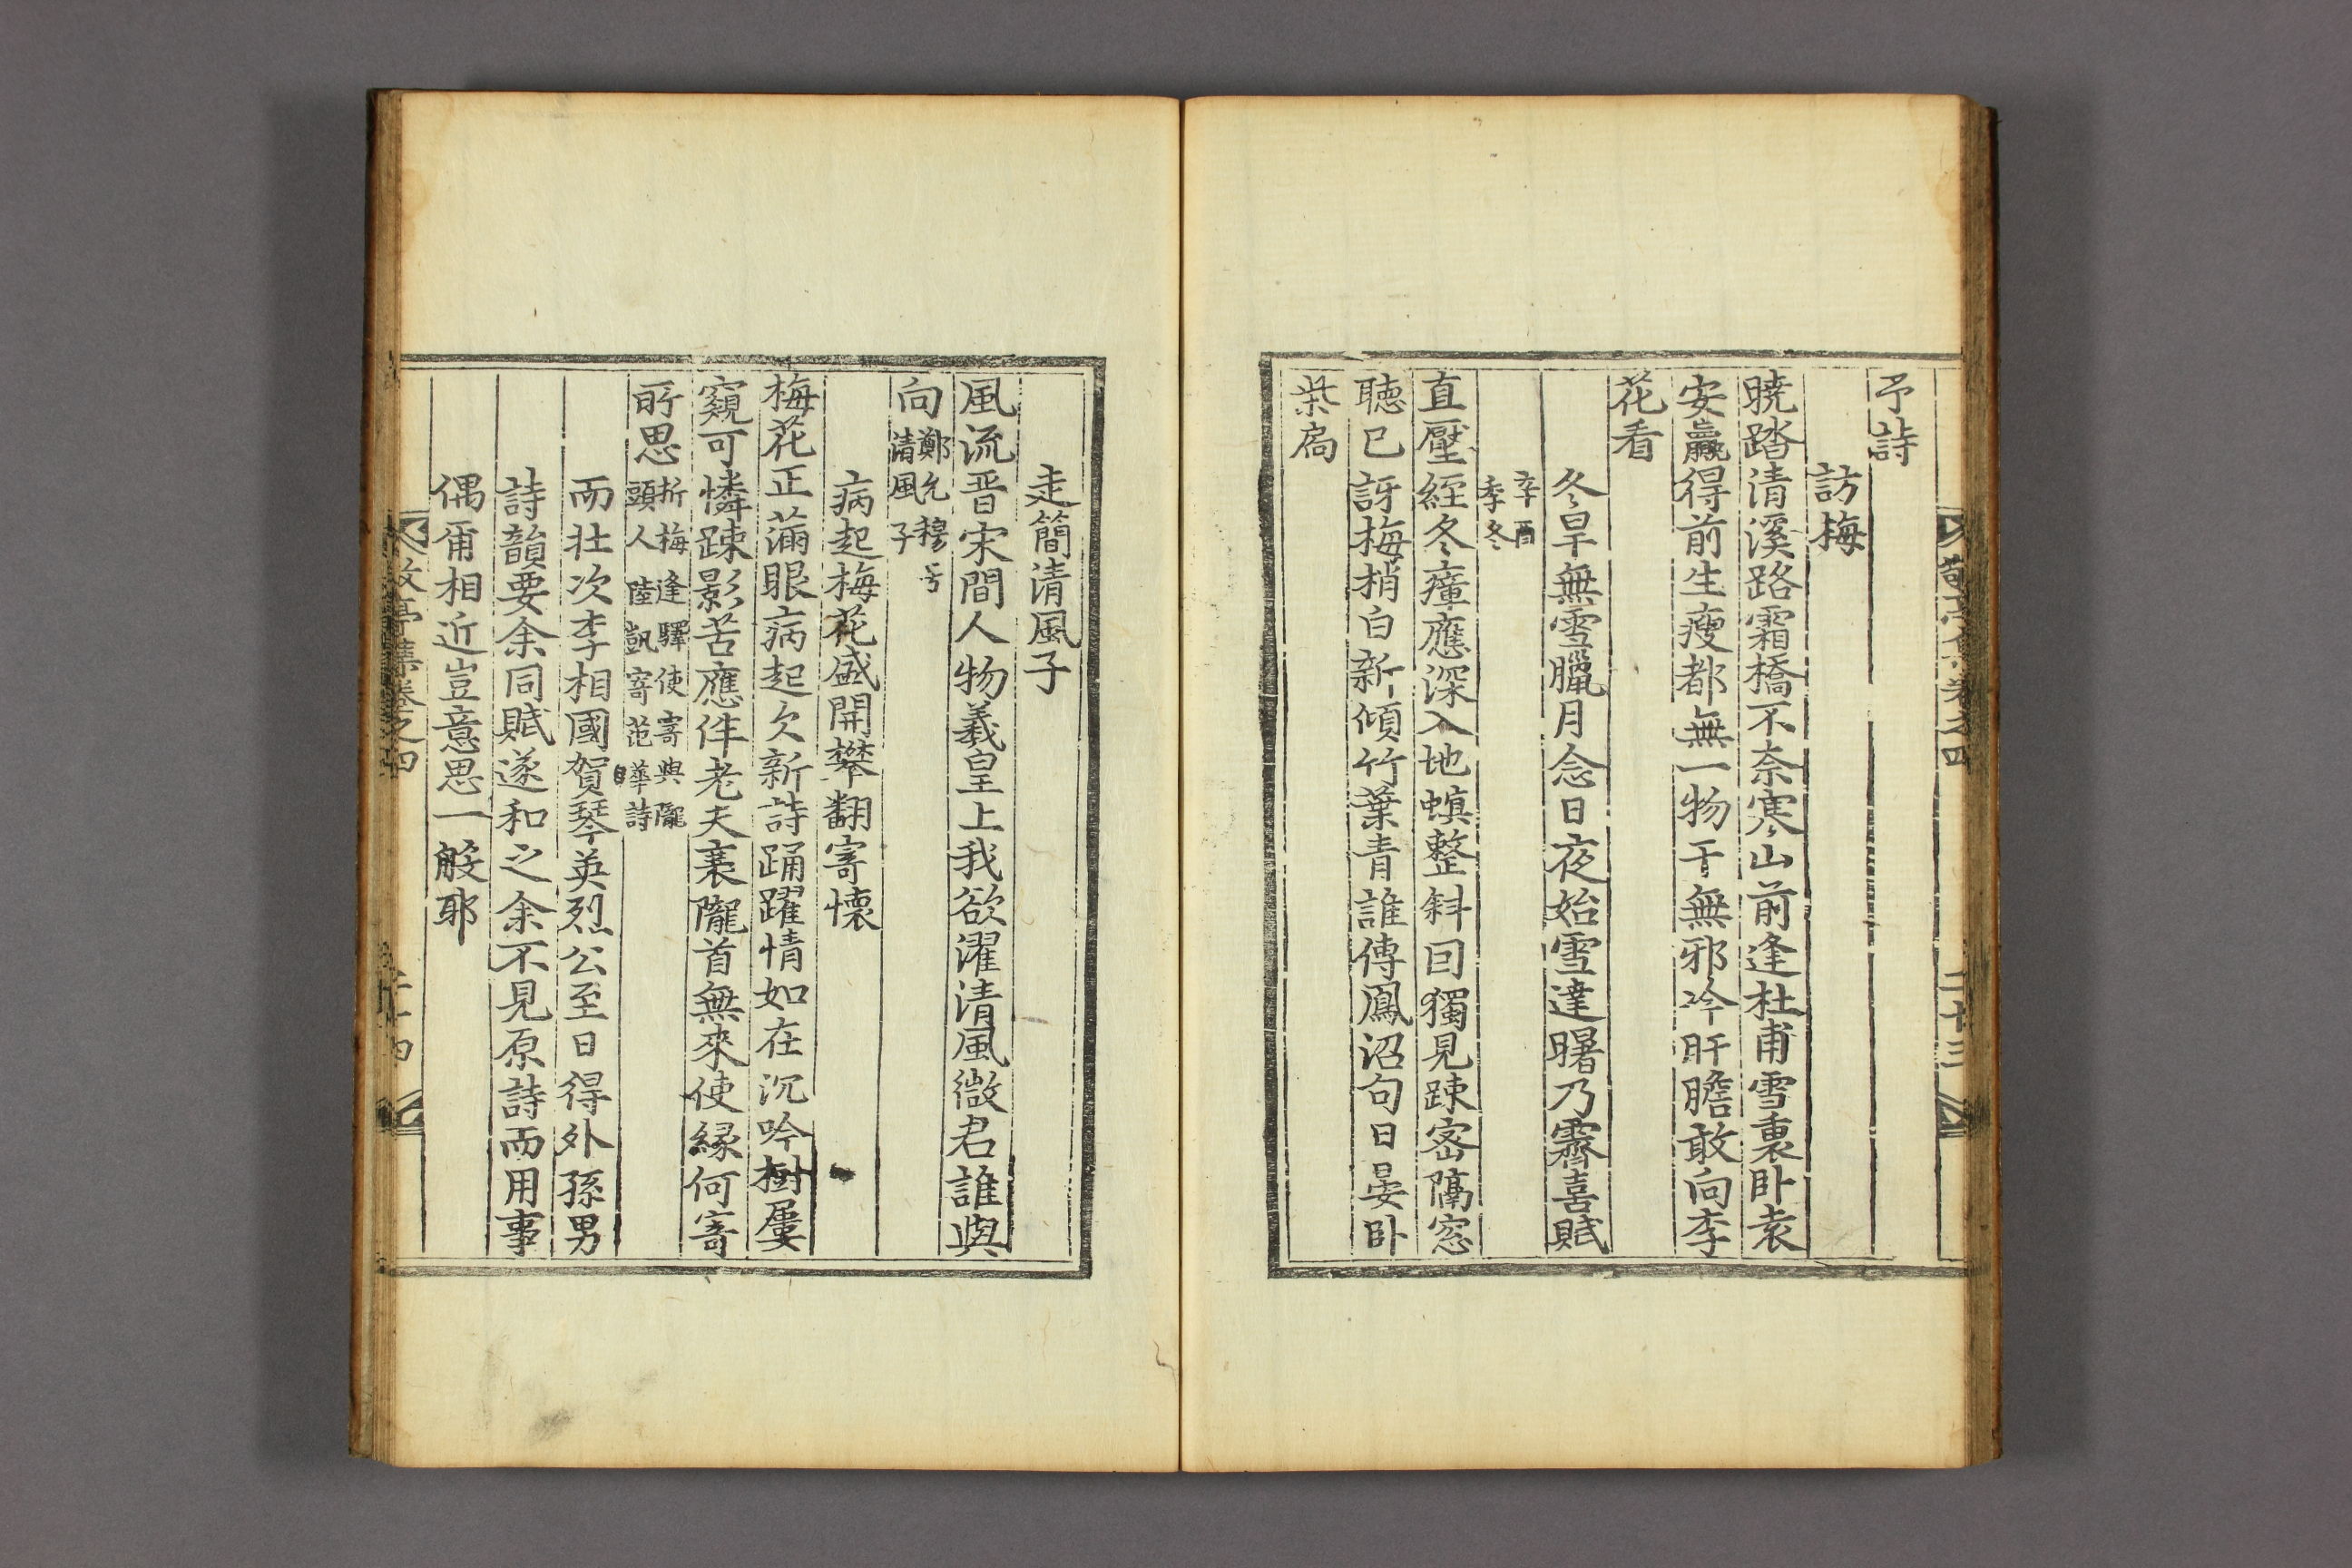 敬亭集卷之四 二十三
予詩
訪梅
曉踏清溪路霜橋不奈寒山前逢杜甫雪裏卧袁
安贏得前生瘦都無一物干無邪吟肝膽敢向李
花看
冬旱無雪臘月念日夜始雪達曙乃霽喜賦
辛酉
季冬
直壓經冬瘴應深入地螟整斜回獨見踈密隔窓
聽已訝梅梢白新傾竹葉青誰傳鳳沼句日晏卧
柴扃
走簡清風子
風流晋宋間人物羲皇上我欲濯清風微君誰與
向鄭允穆号
清風子
病起梅花盛開攀翻寄懷
梅花正滿眼病起欠新詩踊躍情如在沉吟樹屢
窺可憐踈影苦應伴老夫衰隴首無來使緣何寄
所思折梅逢驛使寄與隴
頭人陸凱寄范曄詩
而壯次李相國賀琴英烈公至日得外孫男
詩韻要余同賦遂和之余不見原詩而用事
偶甭相近豈意思一般耶
敬亭集卷之四